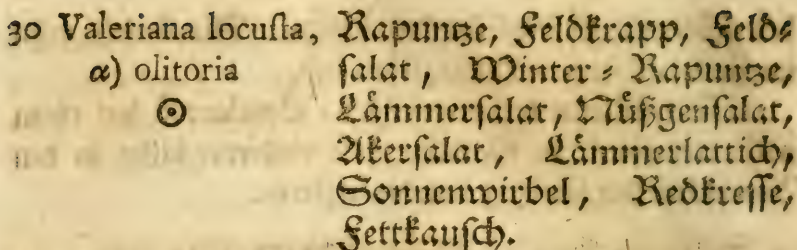 30 Valeriana locuſta, Rapuntze, Feldkrapp, Feld⸗
α) olitoria ſalat, Winter⸗Rapuntze,
☉ Lämmerſalat, Nüßgenſalat,
Akerſalat, Lämmerlattich,
Sonnenwirbel, Redkreſſe,
Fettkauſch.